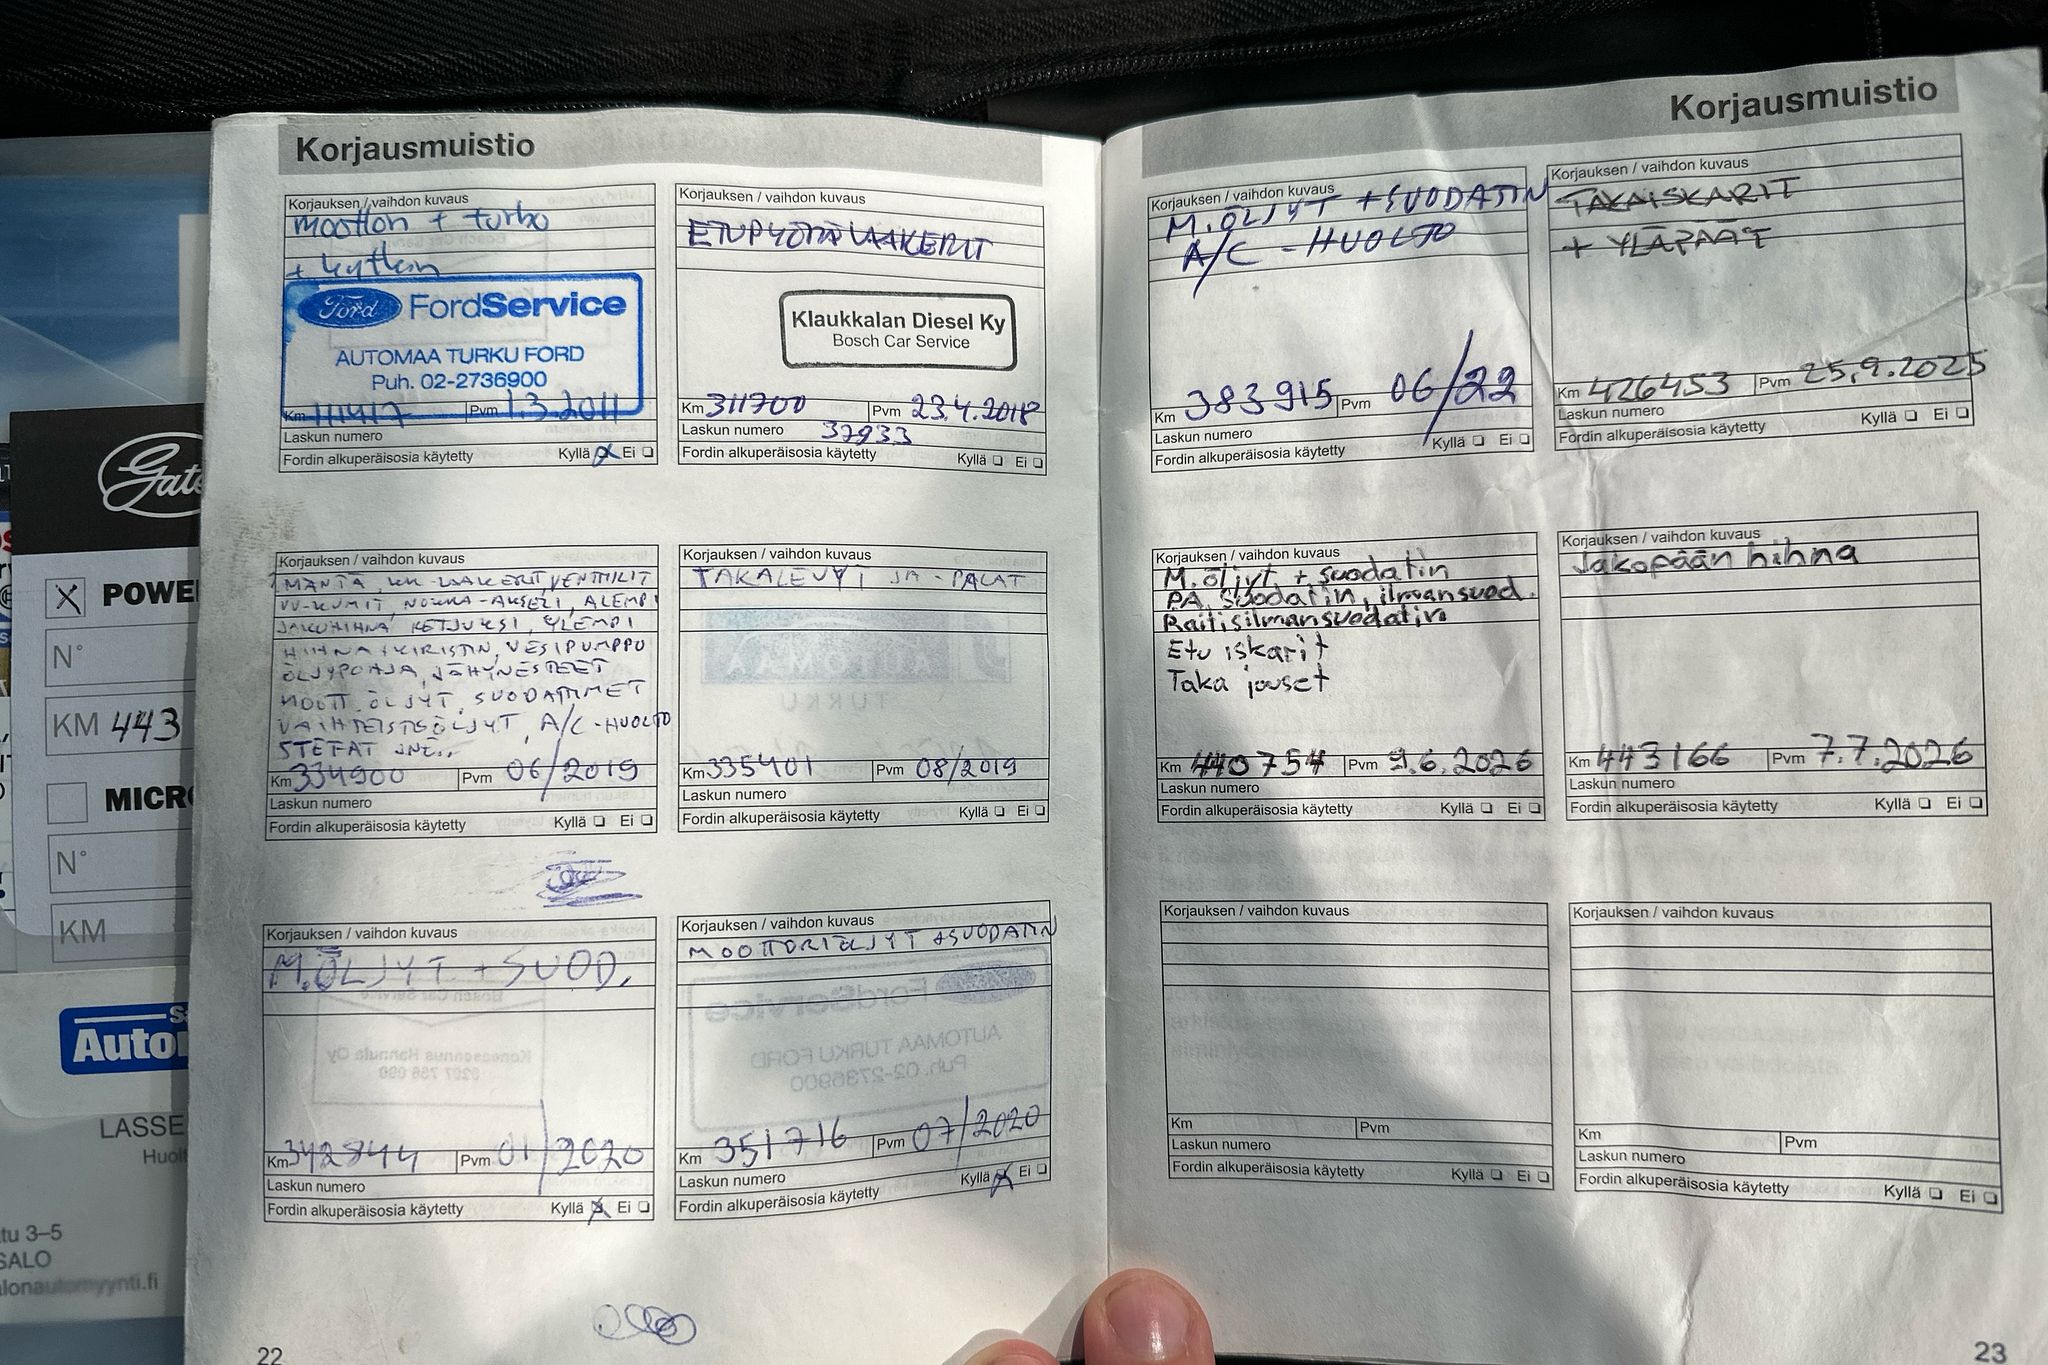 Korjausmuistio
Korjauksen / vaihdon kuvaus
moottori + turbo
+ kytkin
Ford
FordService
AUTOMAA TURKU FORD
Puh. 02-2736900
Km 111417 Pvm 1.3.2011
Laskun numero
Fordin alkuperäisosia käytetty Kyllä Ei
Korjauksen / vaihdon kuvaus
ETUPYÖRÄLAAKERIT
Klaukkalan Diesel Ky
Bosch Car Service
Km 311700 Pvm 23.4.2018
Laskun numero 37933
Fordin alkuperäisosia käytetty Kyllä Ei
Korjauksen / vaihdon kuvaus
MÄNTÄ, KK-LAAKERIT, VENTTIILIT
VV-KUMIT, NOKKA-AKSELI, ALEMPI
JAKOHIHNA KETJUKSI, YLEMPI
HIHNA + KIRISTIN, VESIPUMPPU
ÖLJYPOHJA, JÄHYNESTEET
MOOTT. ÖLJYT, SUODATTIMET
VAIHTEISTOÖLJYT, A/C-HUOLTO
STEFAT JNE..
Km 334900 Pvm 06/2019
Laskun numero
Fordin alkuperäisosia käytetty Kyllä Ei
Korjauksen / vaihdon kuvaus
TAKALEVYT JA -PALAT
Km 335401 Pvm 08/2019
Laskun numero
Fordin alkuperäisosia käytetty Kyllä Ei
Korjauksen / vaihdon kuvaus
M.ÖLJYT + SUOD.
Km 342844 Pvm 01/2020
Laskun numero
Fordin alkuperäisosia käytetty Kyllä Ei
Korjauksen / vaihdon kuvaus
MOOTTORIÖLJYT + SUODATIN
Km 351716 Pvm 07/2020
Laskun numero
Fordin alkuperäisosia käytetty Kyllä Ei
22
Korjausmuistio
Korjauksen / vaihdon kuvaus
M. ÖLJYT + SUODATIN
A/C - HUOLTO
Km 383915 Pvm 06/22
Laskun numero
Fordin alkuperäisosia käytetty Kyllä Ei
Korjauksen / vaihdon kuvaus
TAKAISKARIT
+ YLÄPÄÄT
Km 426453 Pvm 25.9.2025
Laskun numero
Fordin alkuperäisosia käytetty Kyllä Ei
Korjauksen / vaihdon kuvaus
M. öljyt + suodatin
PA suodatin, ilmansuod.
Raitisilmansuodatin
Etu iskarit
Taka jouset
Km 440754 Pvm 9.6.2026
Laskun numero
Fordin alkuperäisosia käytetty Kyllä Ei
Korjauksen / vaihdon kuvaus
Jakopään hihna
Km 443166 Pvm 7.7.2026
Laskun numero
Fordin alkuperäisosia käytetty Kyllä Ei
Korjauksen / vaihdon kuvaus
Km Pvm
Laskun numero
Fordin alkuperäisosia käytetty Kyllä Ei
Korjauksen / vaihdon kuvaus
Km Pvm
Laskun numero
Fordin alkuperäisosia käytetty Kyllä Ei
23
Gate
POWE
N°
KM 443
MICR
N°
KM
Auto
LASSE
Huol
tu 3–5
SALO
lonautomyynti.fi